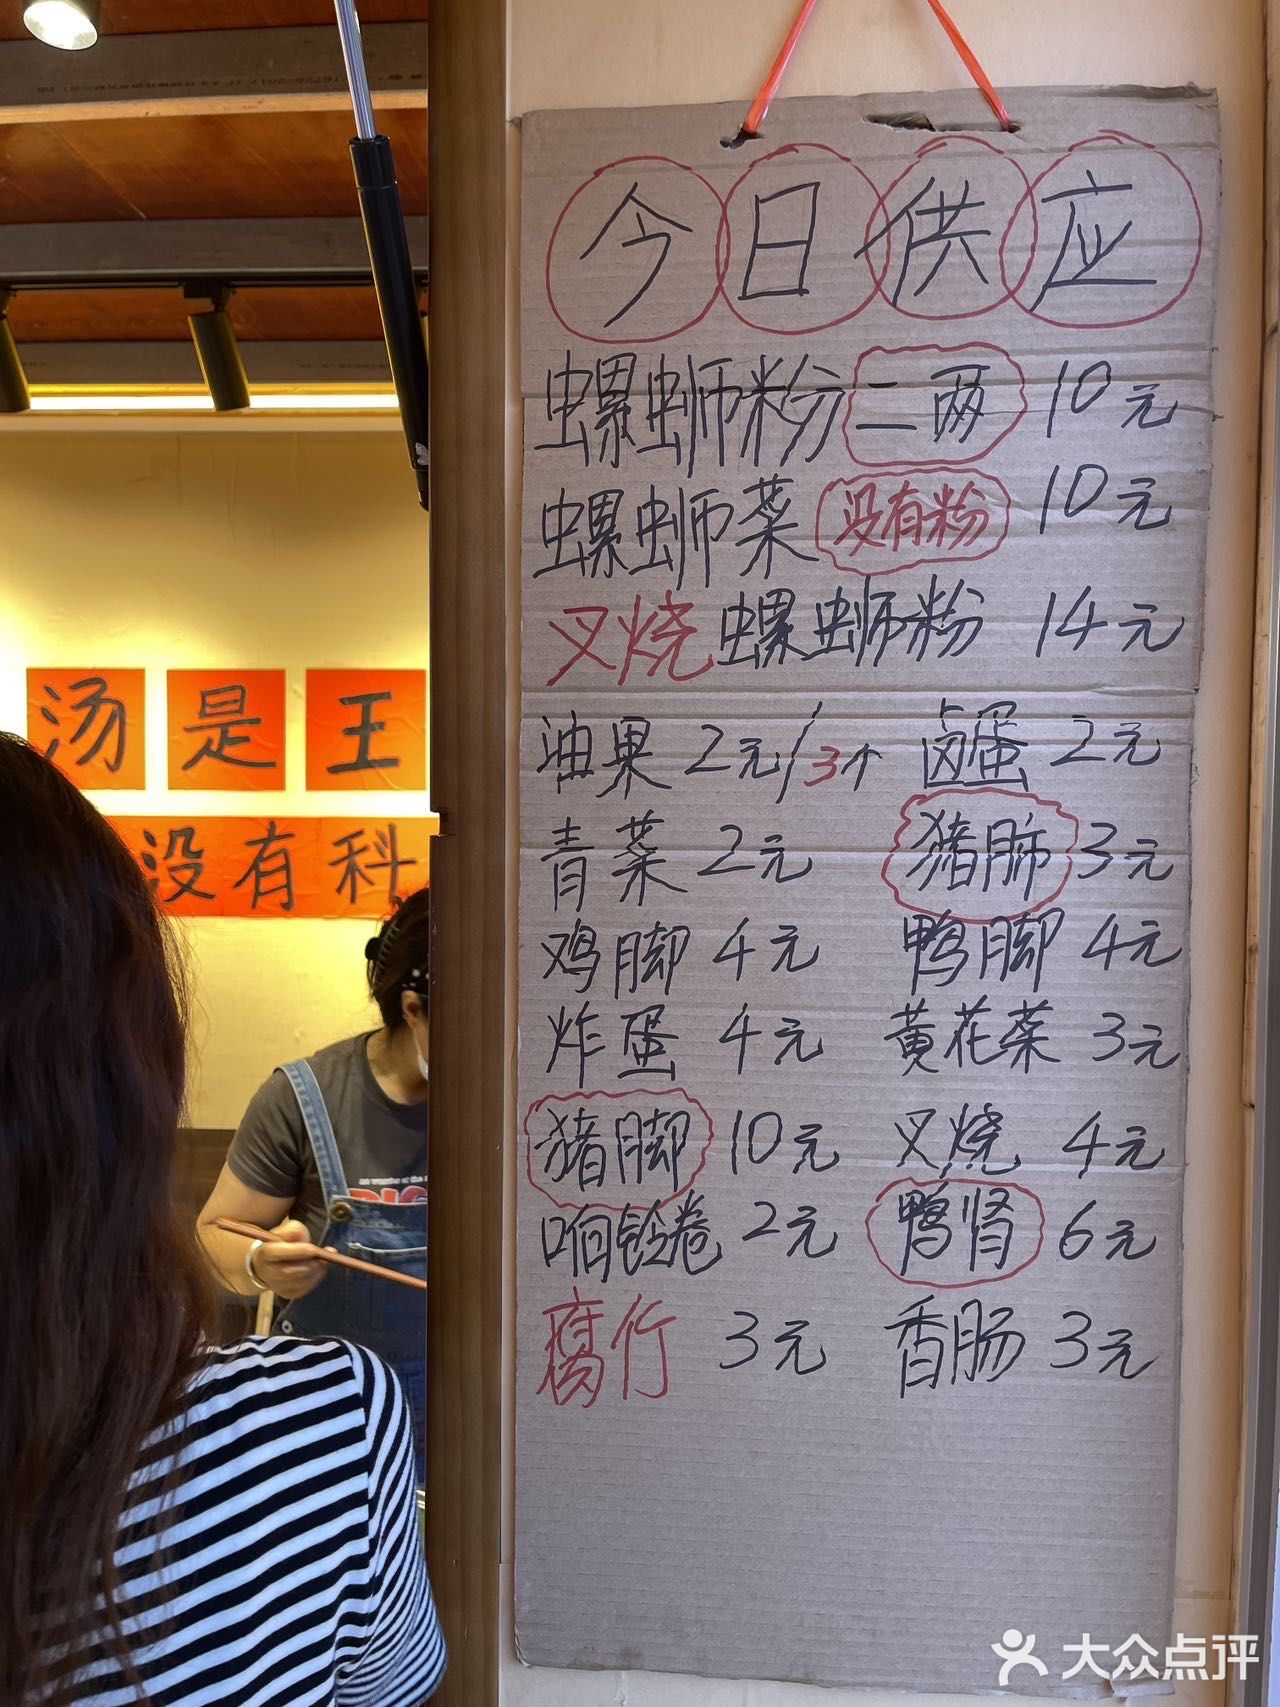 今日供应
螺蛳粉 二两 10元
螺蛳菜 没有粉 10元
叉烧螺蛳粉 14元
油果 2元/3个 卤蛋 2元
青菜 2元 猪肺 3元
鸡脚 4元 鸭脚 4元
炸蛋 4元 黄花菜 3元
猪脚 10元 叉烧 4元
响铃卷 2元 鸭肾 6元
腐竹 3元 香肠 3元
汤是王
没有科
大众点评